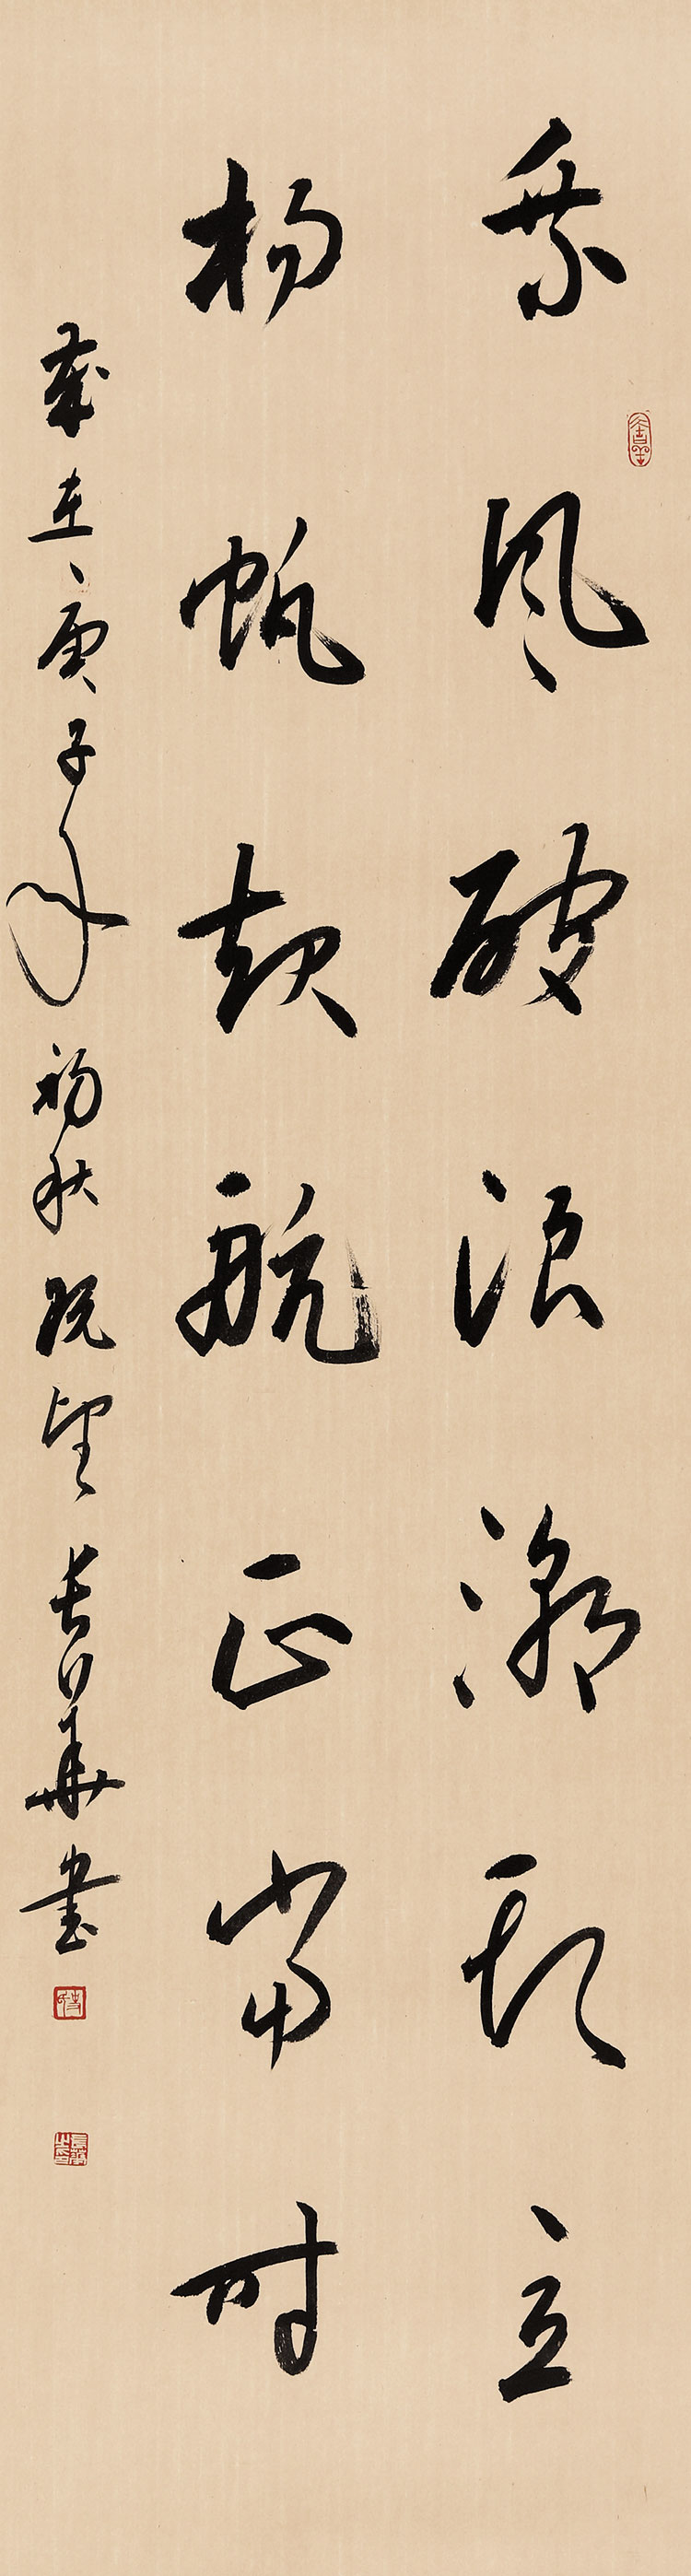 乘风破浪潮头立
扬帆起航正当时
岁在庚子年初秋既望长华书